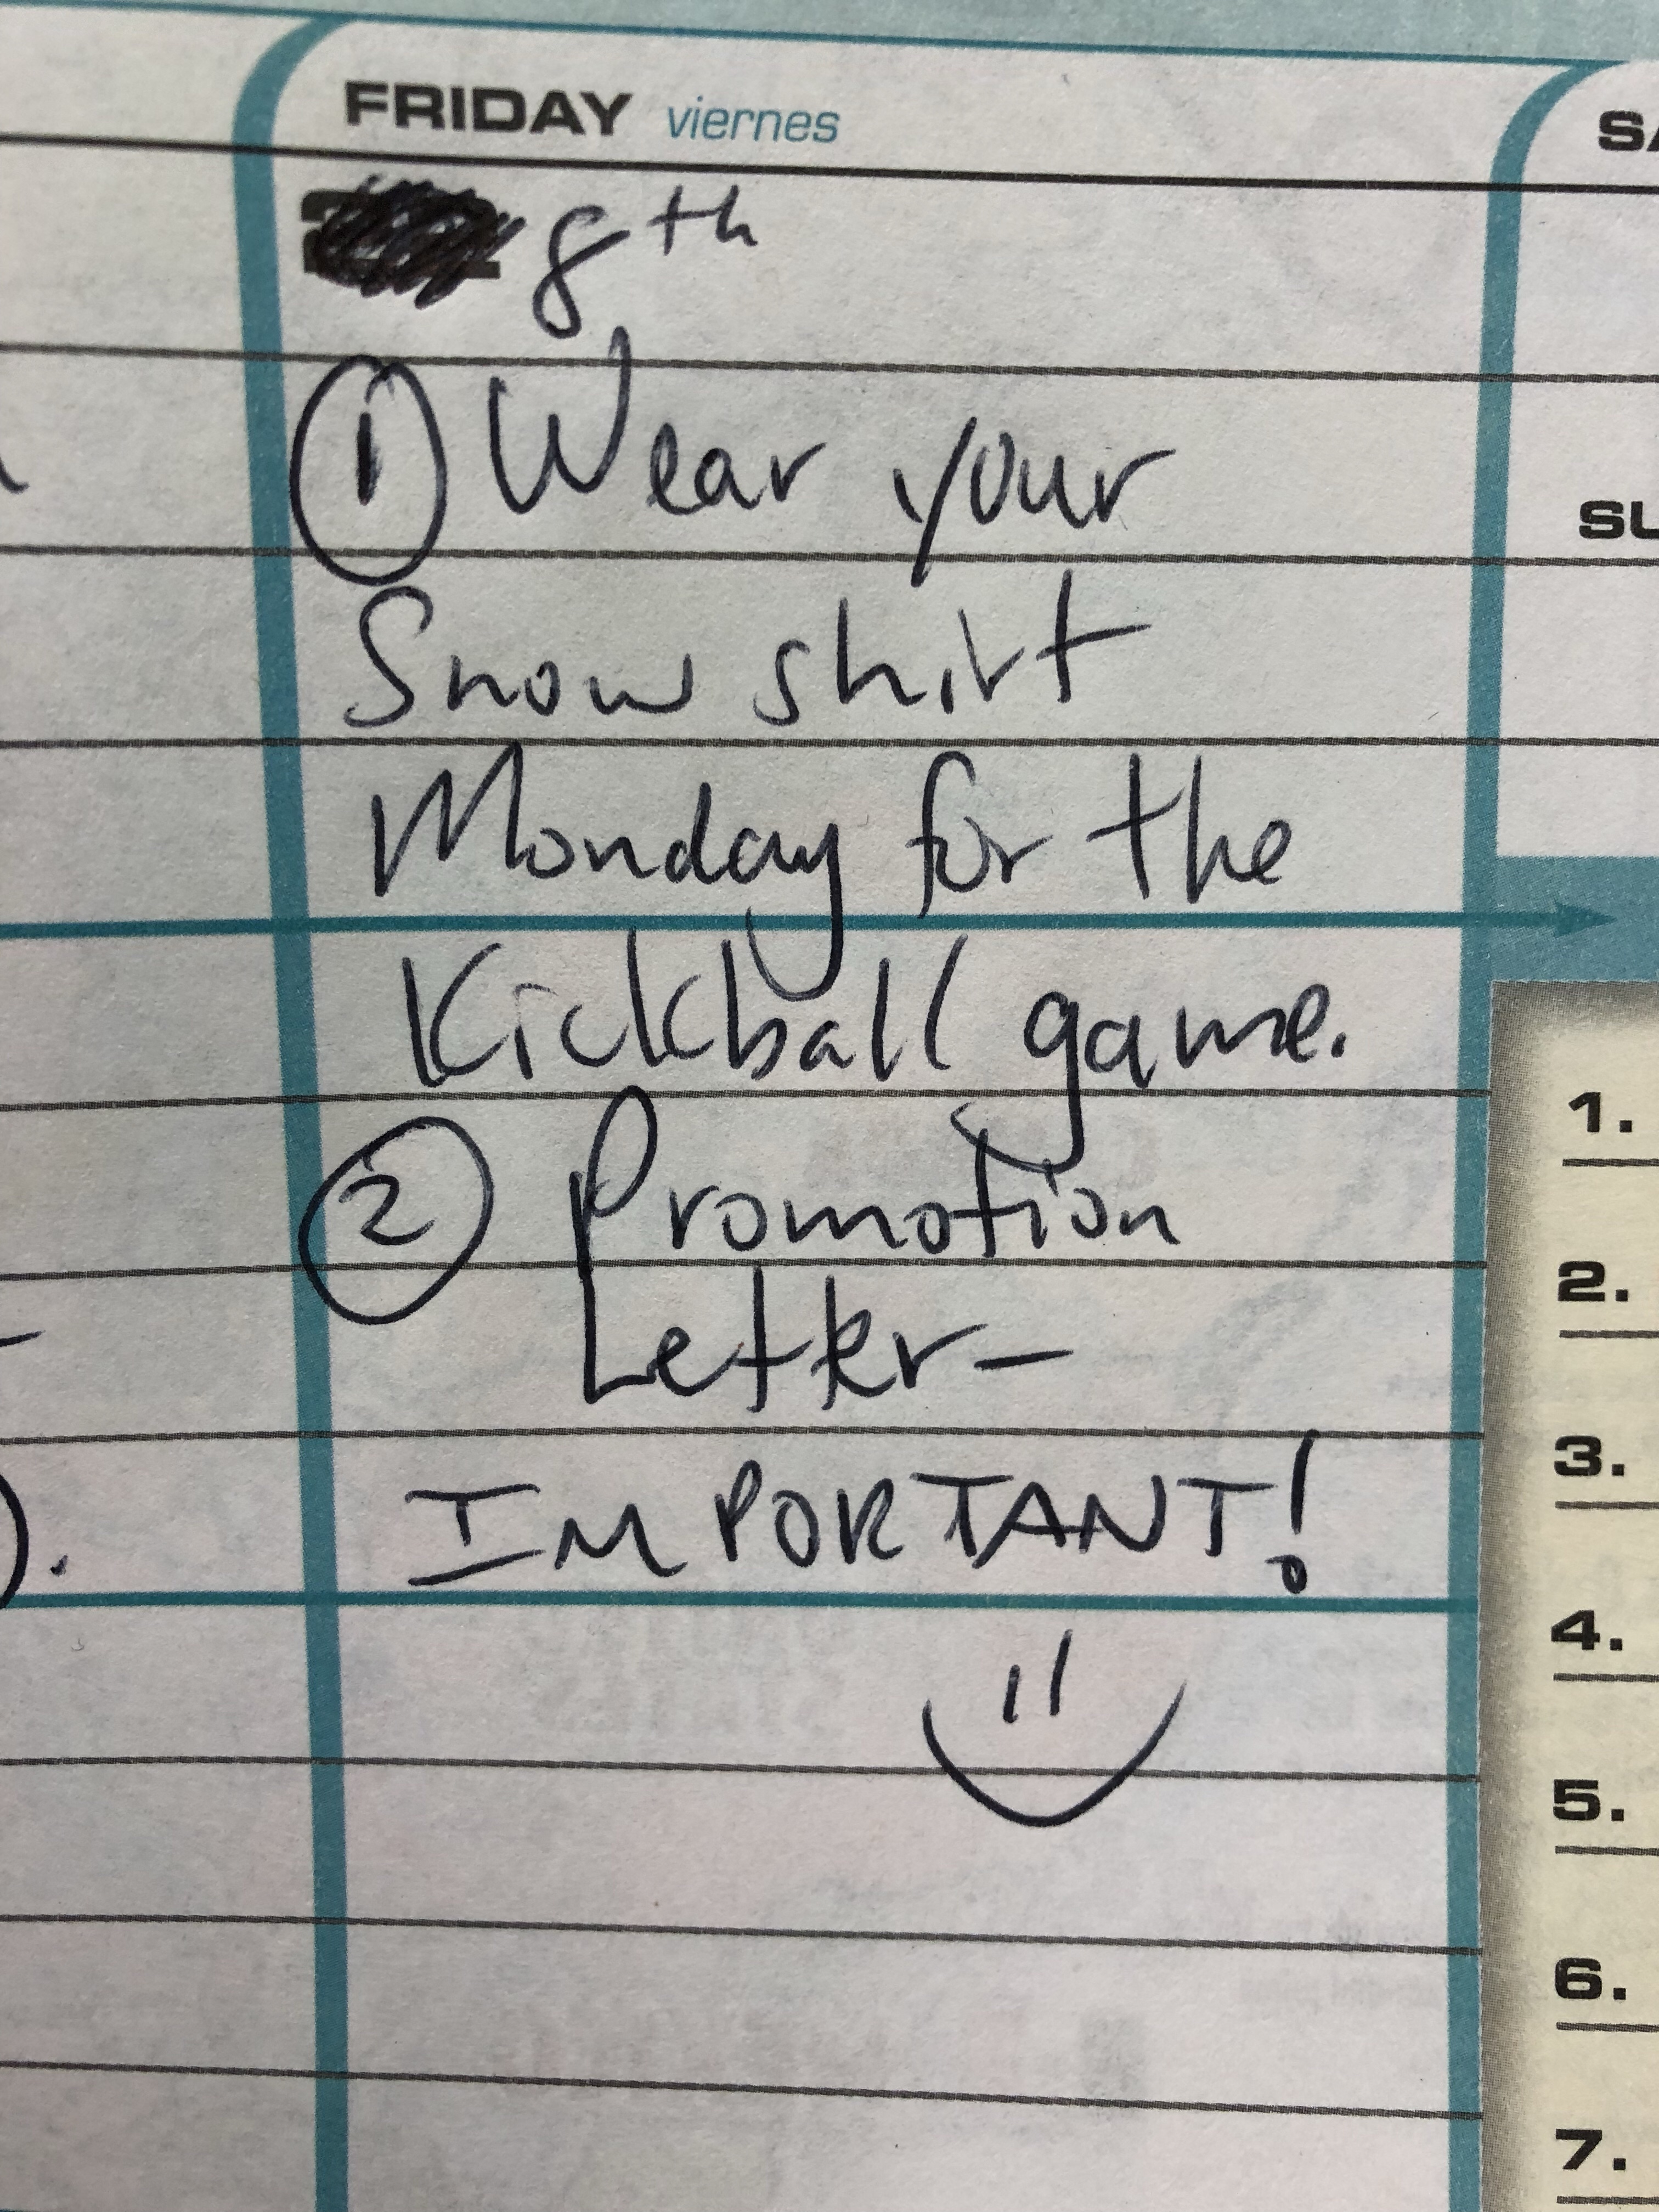 FRIDAY viernes
8th
① Wear your
Snow shirt
Monday for the
Kickball game.
② Promotion
Letter-
IMPORTANT!
SA
SU
1.
2.
3.
4.
5.
6.
7.